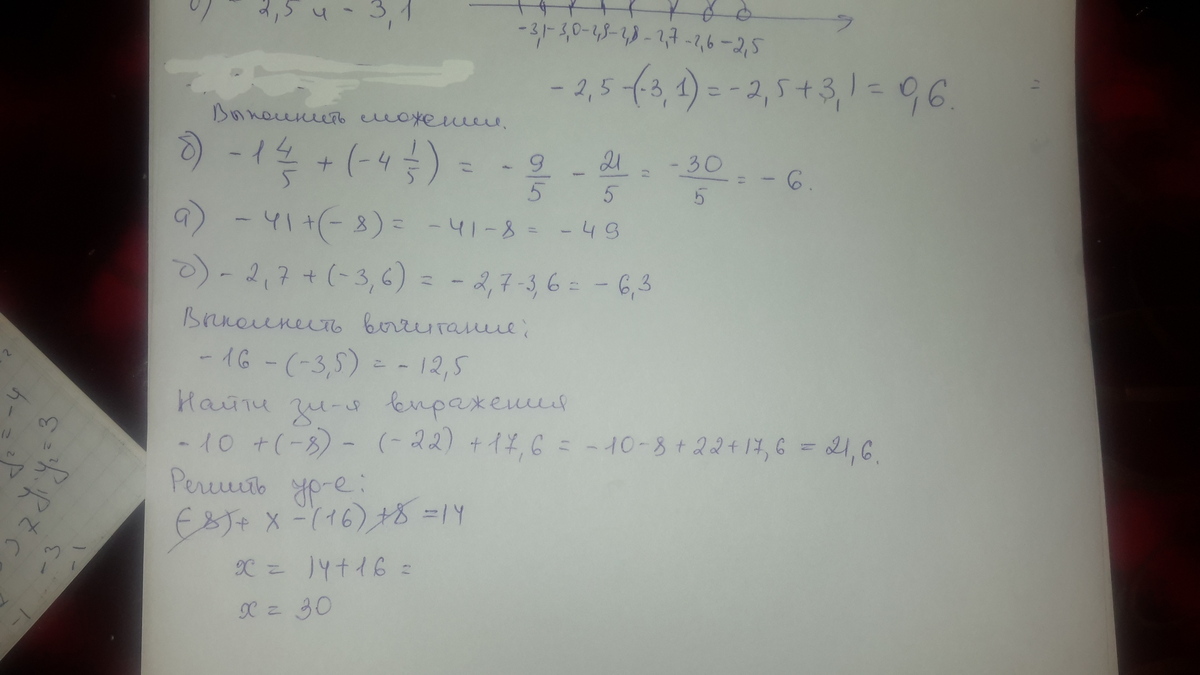 б) - 2,5 и - 3,1
-3,1 -3,0 -2,9 -2,8 -2,7 -2,6 -2,5
- 2,5 - (-3,1) = - 2,5 + 3,1 = 0,6. =
Выполнить сложении.
б) - 1 4/5 + (-4 1/5) = - 9/5 - 21/5 = -30/5 = - 6.
а) - 41 + (- 8) = - 41 - 8 = - 49
б) - 2,7 + (-3,6) = - 2,7 - 3,6 = - 6,3
Выполнить вычитание;
- 16 - (-3,5) = - 12,5
Найти зн-я выражения
- 10 + (-8) - (-22) + 17,6 = - 10 - 8 + 22 + 17,6 = 21,6.
Решить ур-е:
(-8) + x - (16) + 8 = 14
x = 14 + 16 =
x = 30
y₂ = -4
y₁·y₂ = 3
-3
-1
-1